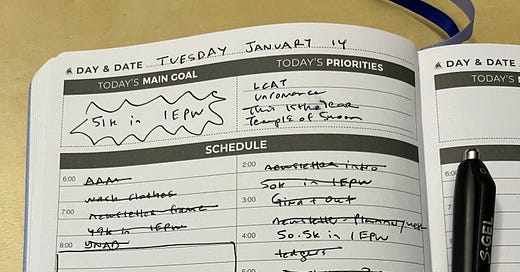 DAY & DATE TUESDAY JANUARY 14
TODAY'S MAIN GOAL
51k in 1EPW
TODAY'S PRIORITIES
LCAT
Unromance
This is the Year
Temple of Swoon
SCHEDULE
6:00 AAM
wash clothes
7:00 newsletter frame
49k in 1EPW
8:00 YNAB
2:00 newsletter intro
50k in 1EPW
3:00 Gina + out
newsletter-planner/
4:00 50.5k in 1EPW
ledgers
5:00
DAY &
TODAY'S
S.GEL